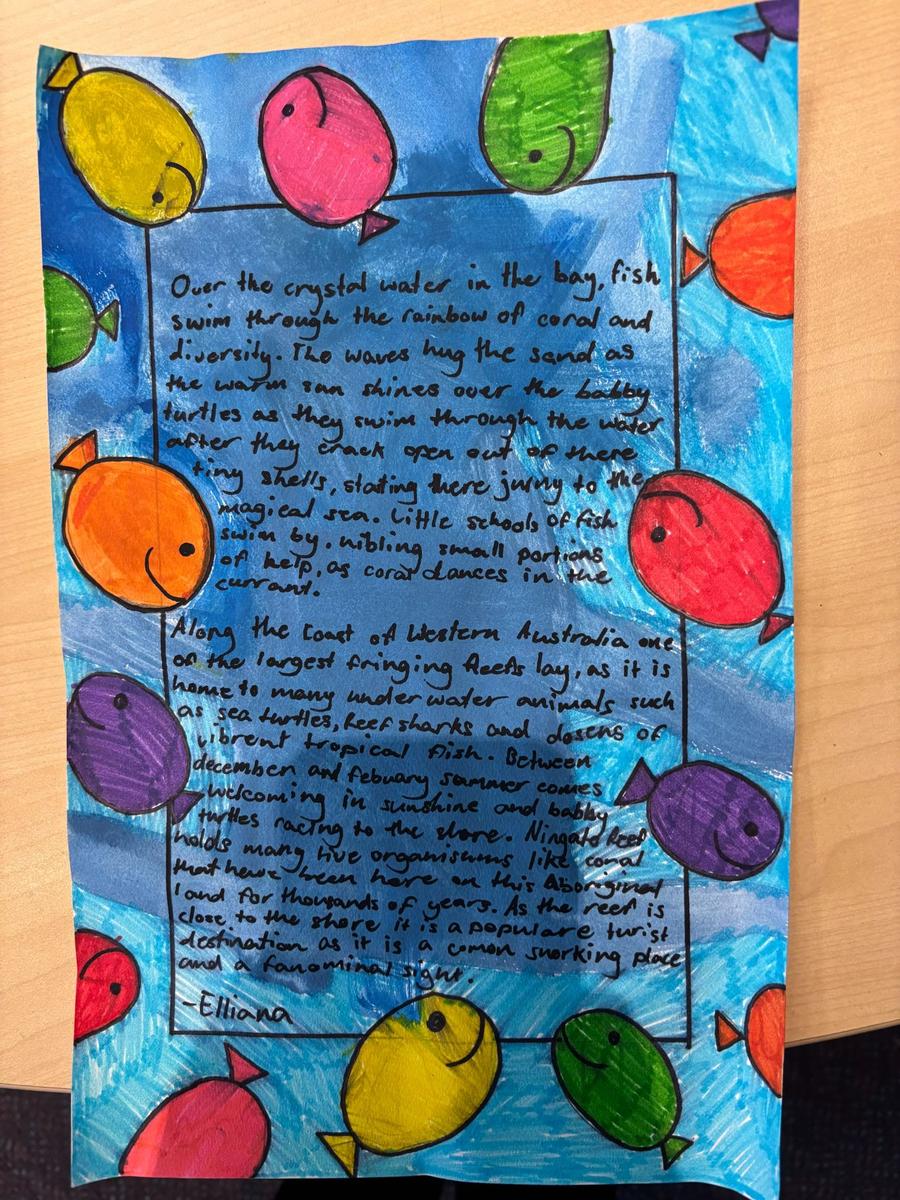 Over the crystal water in the bay, fish
swim through the rainbow of coral and
diversity. The waves hug the sand as
the warm sun shines over the babby
turtles as they swim through the water
after they crack open out of there
tiny shells, stating there jurny to the
magical sea. Little schools of fish
swim by, nibling small portions
of help, as coral dances in the
currant.
Along the Coast of Western Australia one
of the largest fringing Reefs lay, as it is
home to many under water animals such
as sea turtles, Reef sharks and dosens of
vibrent tropical fish. Between
december and febuary sammer comes
welcoming in sunshine and babby
turtles racing to the shore. Ningaloo Reef
holds many live organisums like coral
that have been here on this Aboriginal
land for thousands of years. As the reef is
close to the shore it is a populare turist
destination as it is a comon snorking place
and a fanominal sight.
-Elliana